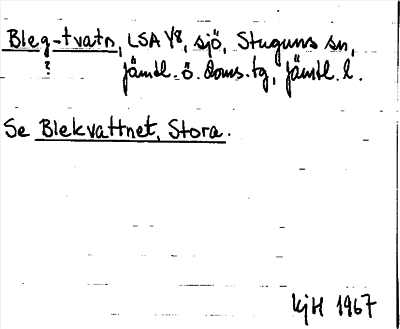 Bleg-tvatn, LSA Y8, sjö, Stuguns sn,
? jämtl. ö. doms. tg, jämtl. l.
Se Blekvattnet, Stora.
KjH 1967